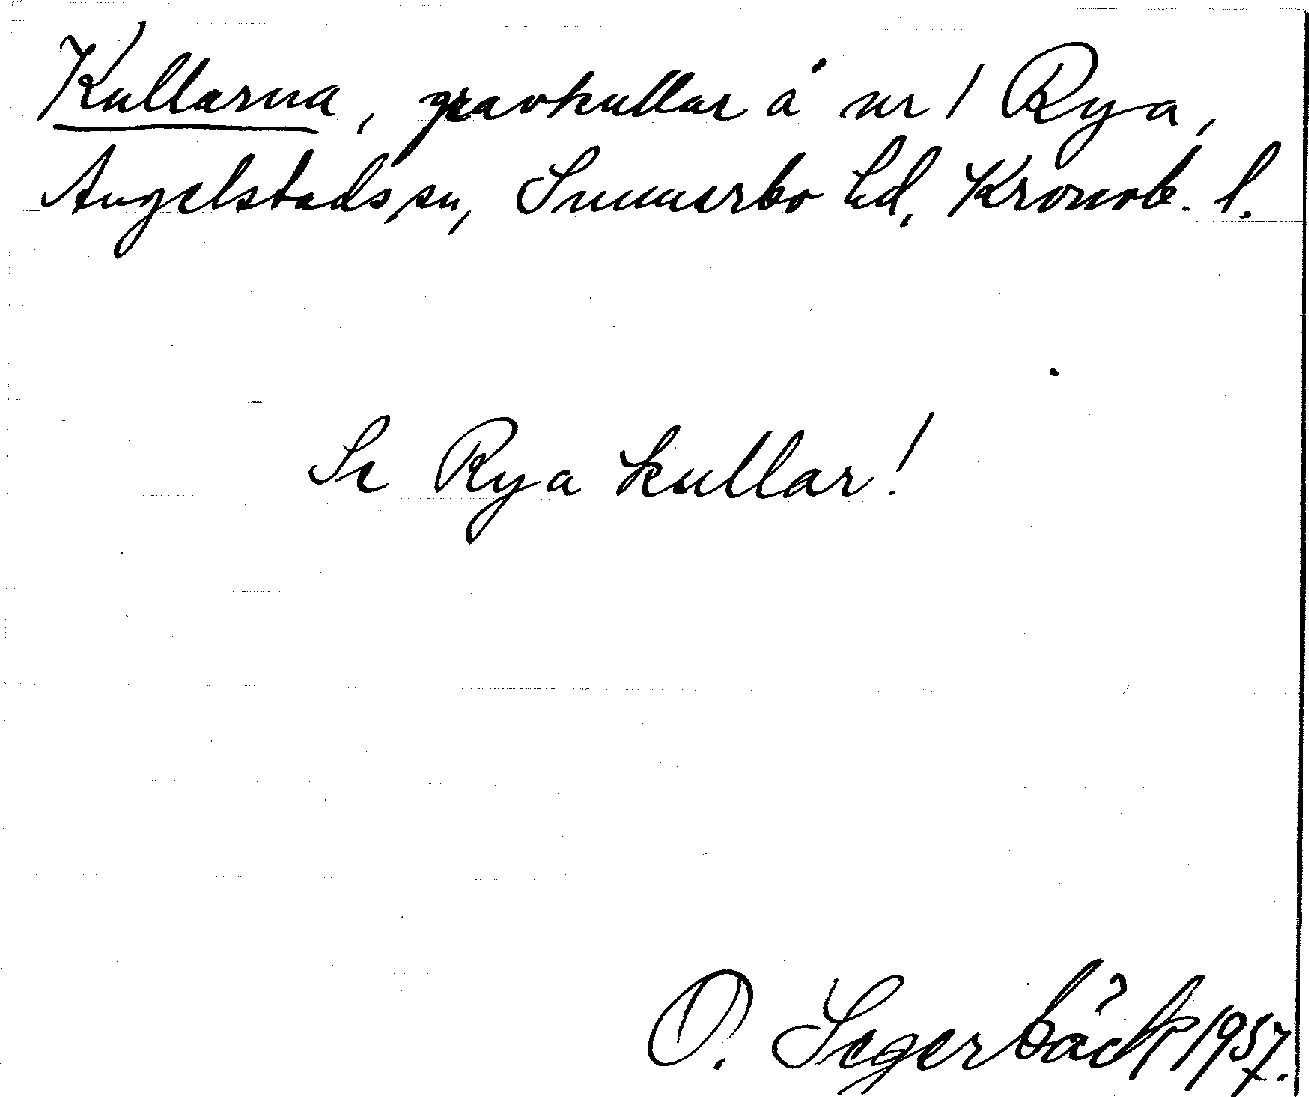 Kullarna, gravkullar å nr 1 Rya,
Angelstads sn, Sunnerbo hd, Kronob. l.
Se Rya kullar!
O. Segerbäck 1957.